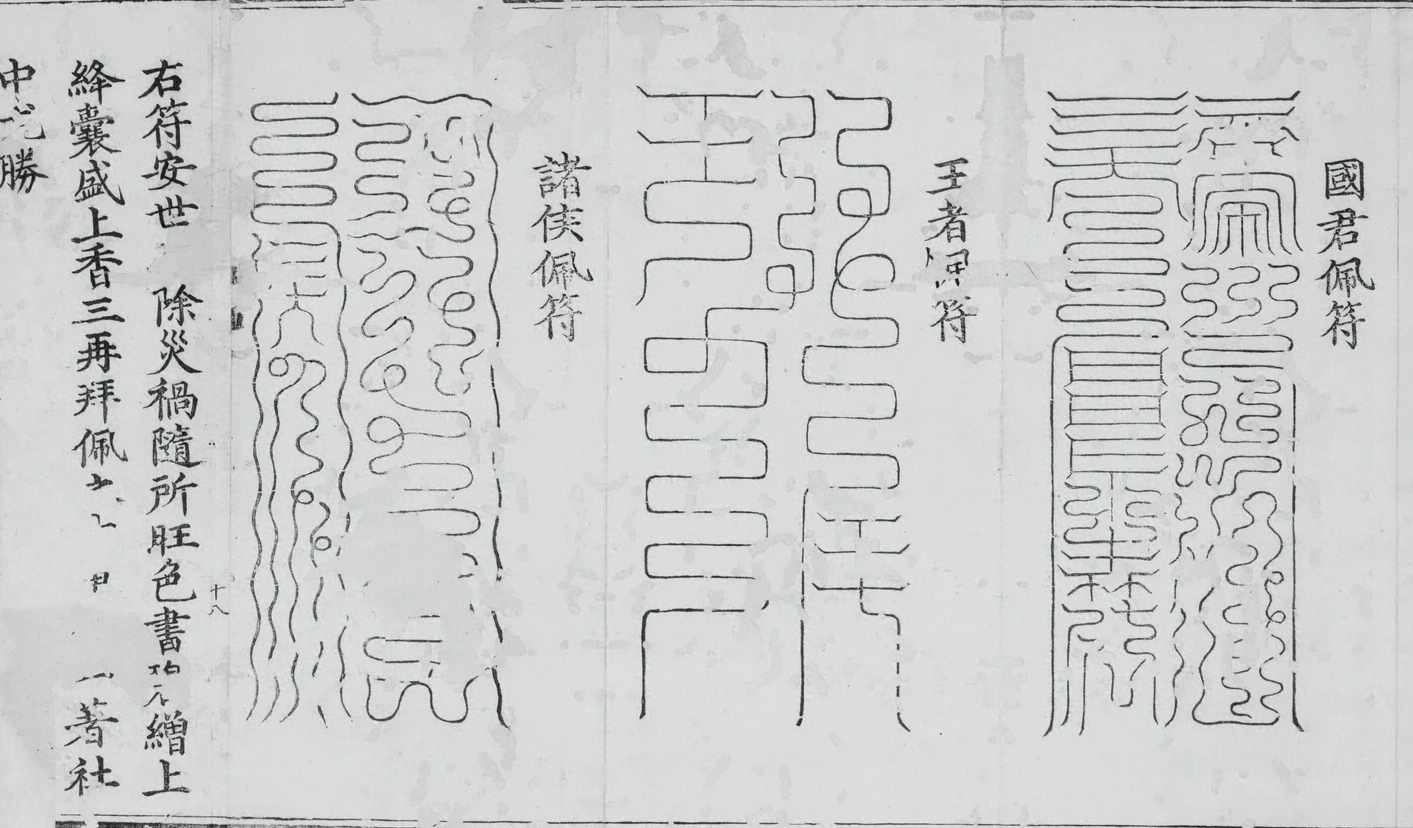 國君佩符
王者佩符
諸侯佩符
十八
右符安世 除災禍隨所旺色書 繒上
絳囊盛上香三再拜佩 著社
中 勝